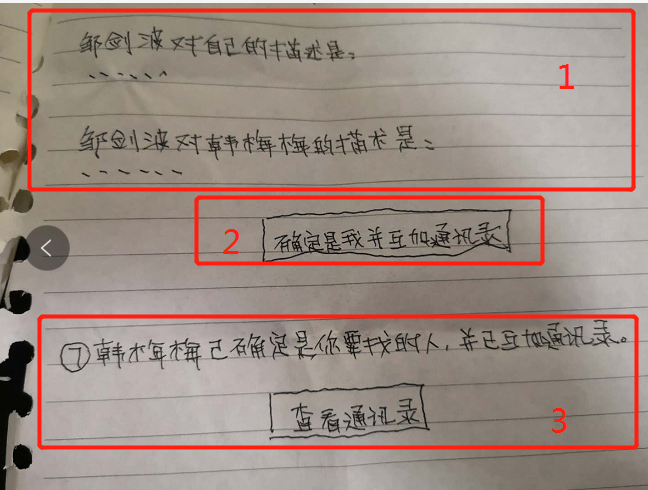 邹剑波对自己的描述是:
......
1
邹剑波对韩梅梅的描术是:
......
2
确定是我并互加通讯录
⑦韩梅梅已确定是你要找的人,并已互加通讯录。
查看通讯录
3